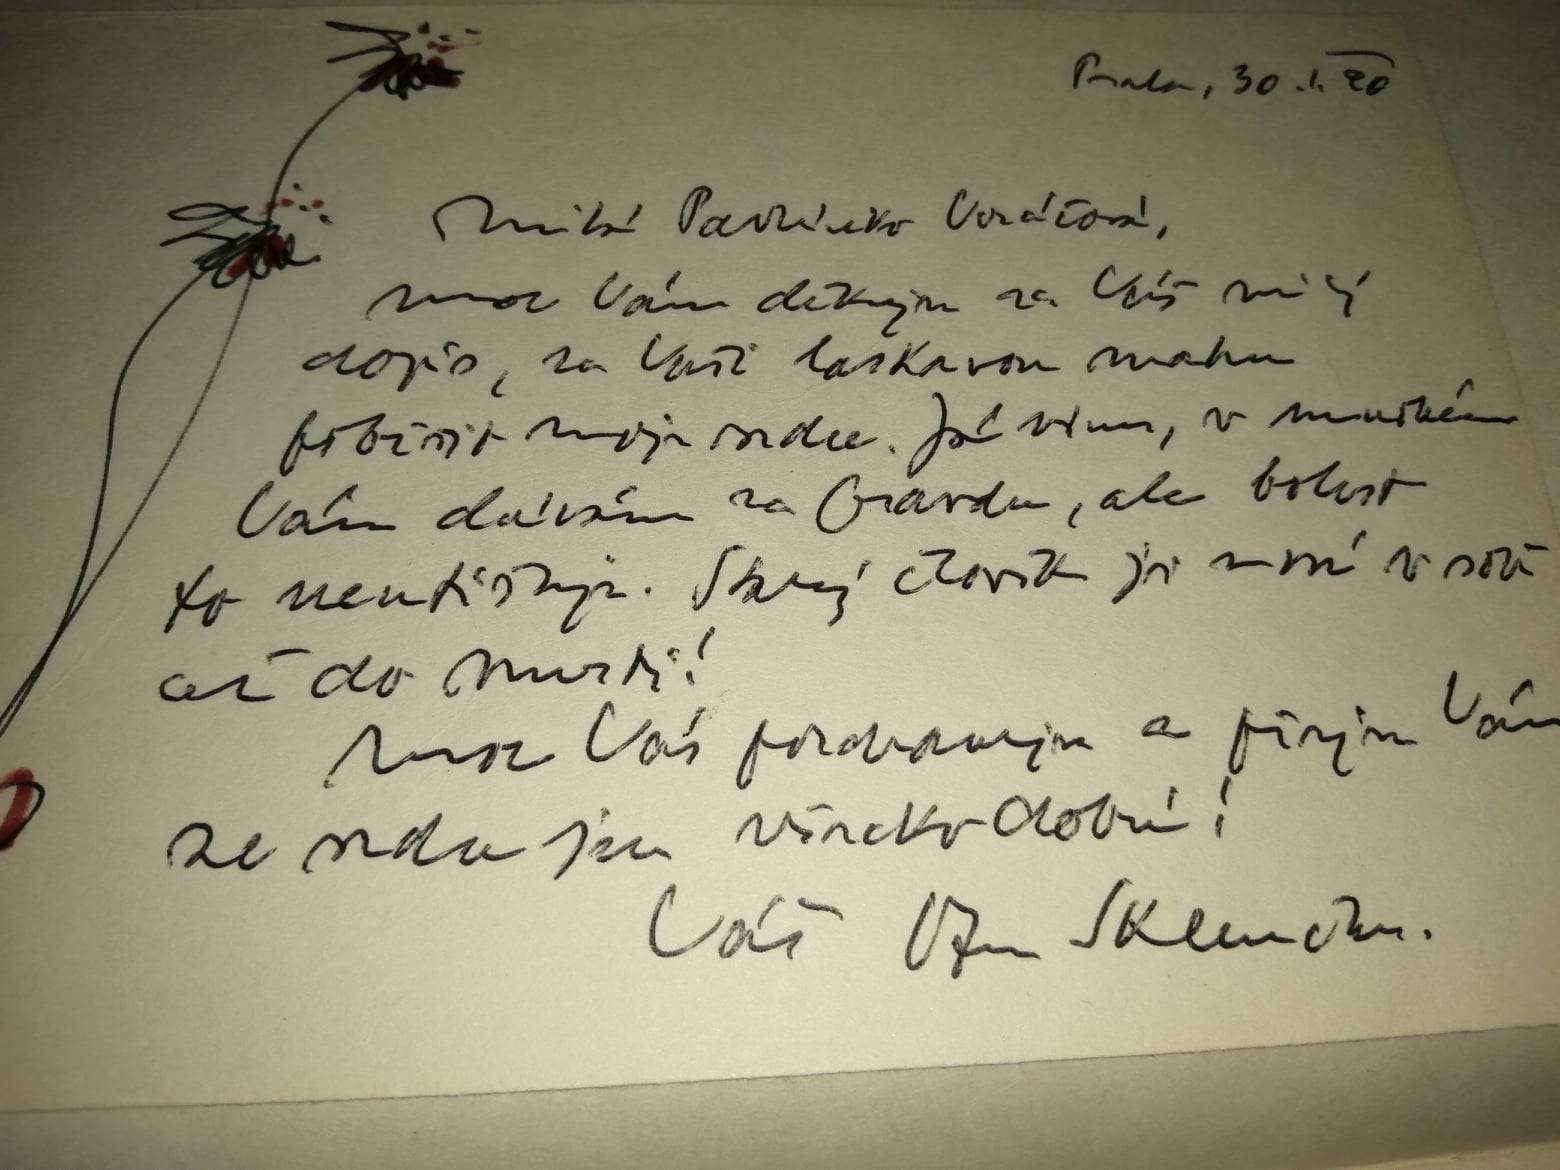 Praha, 30.1.20
Milá Pavlínko Voráčová,
moc Vám děkuju za Váš milý
dopis, za Vaši laskavou snahu
potěšit moje srdce. Já vím, v mnohém
Vám dávám za pravdu, ale bolest
to neutišuje. Starý člověk ji nosí v sobě
až do smrti!
Moc Vás pozdravuju a přeju Vám
ze srdce jen všecko dobré!
Váš